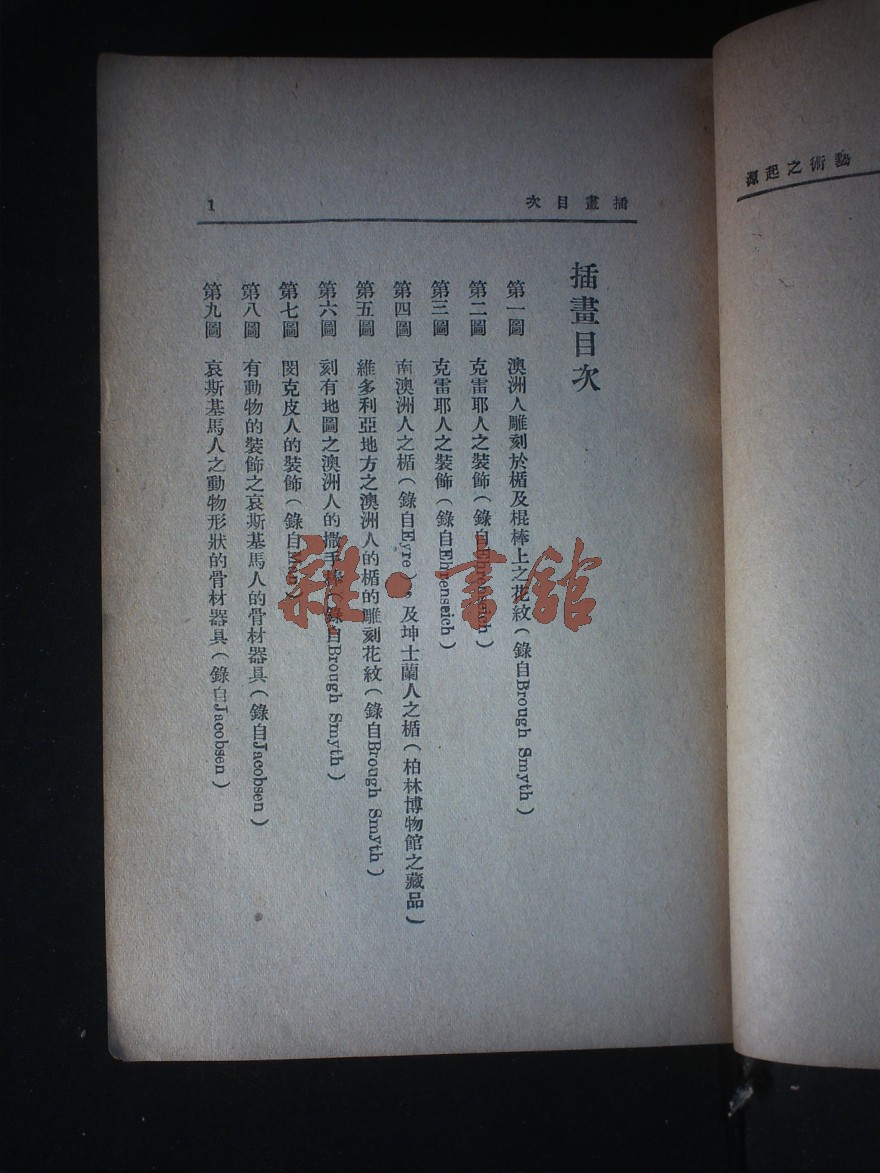 藝術之起源
插畫目次
1
插畫目次
第一圖 澳洲人雕刻於楯及棍棒上之花紋(錄自Brough Smyth)
第二圖 克雷耶人之裝飾(錄自Ehrenseich)
第三圖 克雷耶人之裝飾(錄自Ehrenseich)
第四圖 南澳洲人之楯(錄自Eyre),及坤士蘭人之楯(柏林博物館之藏品)
第五圖 維多利亞地方之澳洲人的楯的雕刻花紋(錄自Brough Smyth)
第六圖 刻有地圖之澳洲人的撒手棒(錄自Brough Smyth)
第七圖 閔克皮人的裝飾(錄自Man)
第八圖 有動物的裝飾之哀斯基馬人的骨材器具(錄自Jacobsen)
第九圖 哀斯基馬人之動物形狀的骨材器具(錄自Jacobsen)
雜·書館